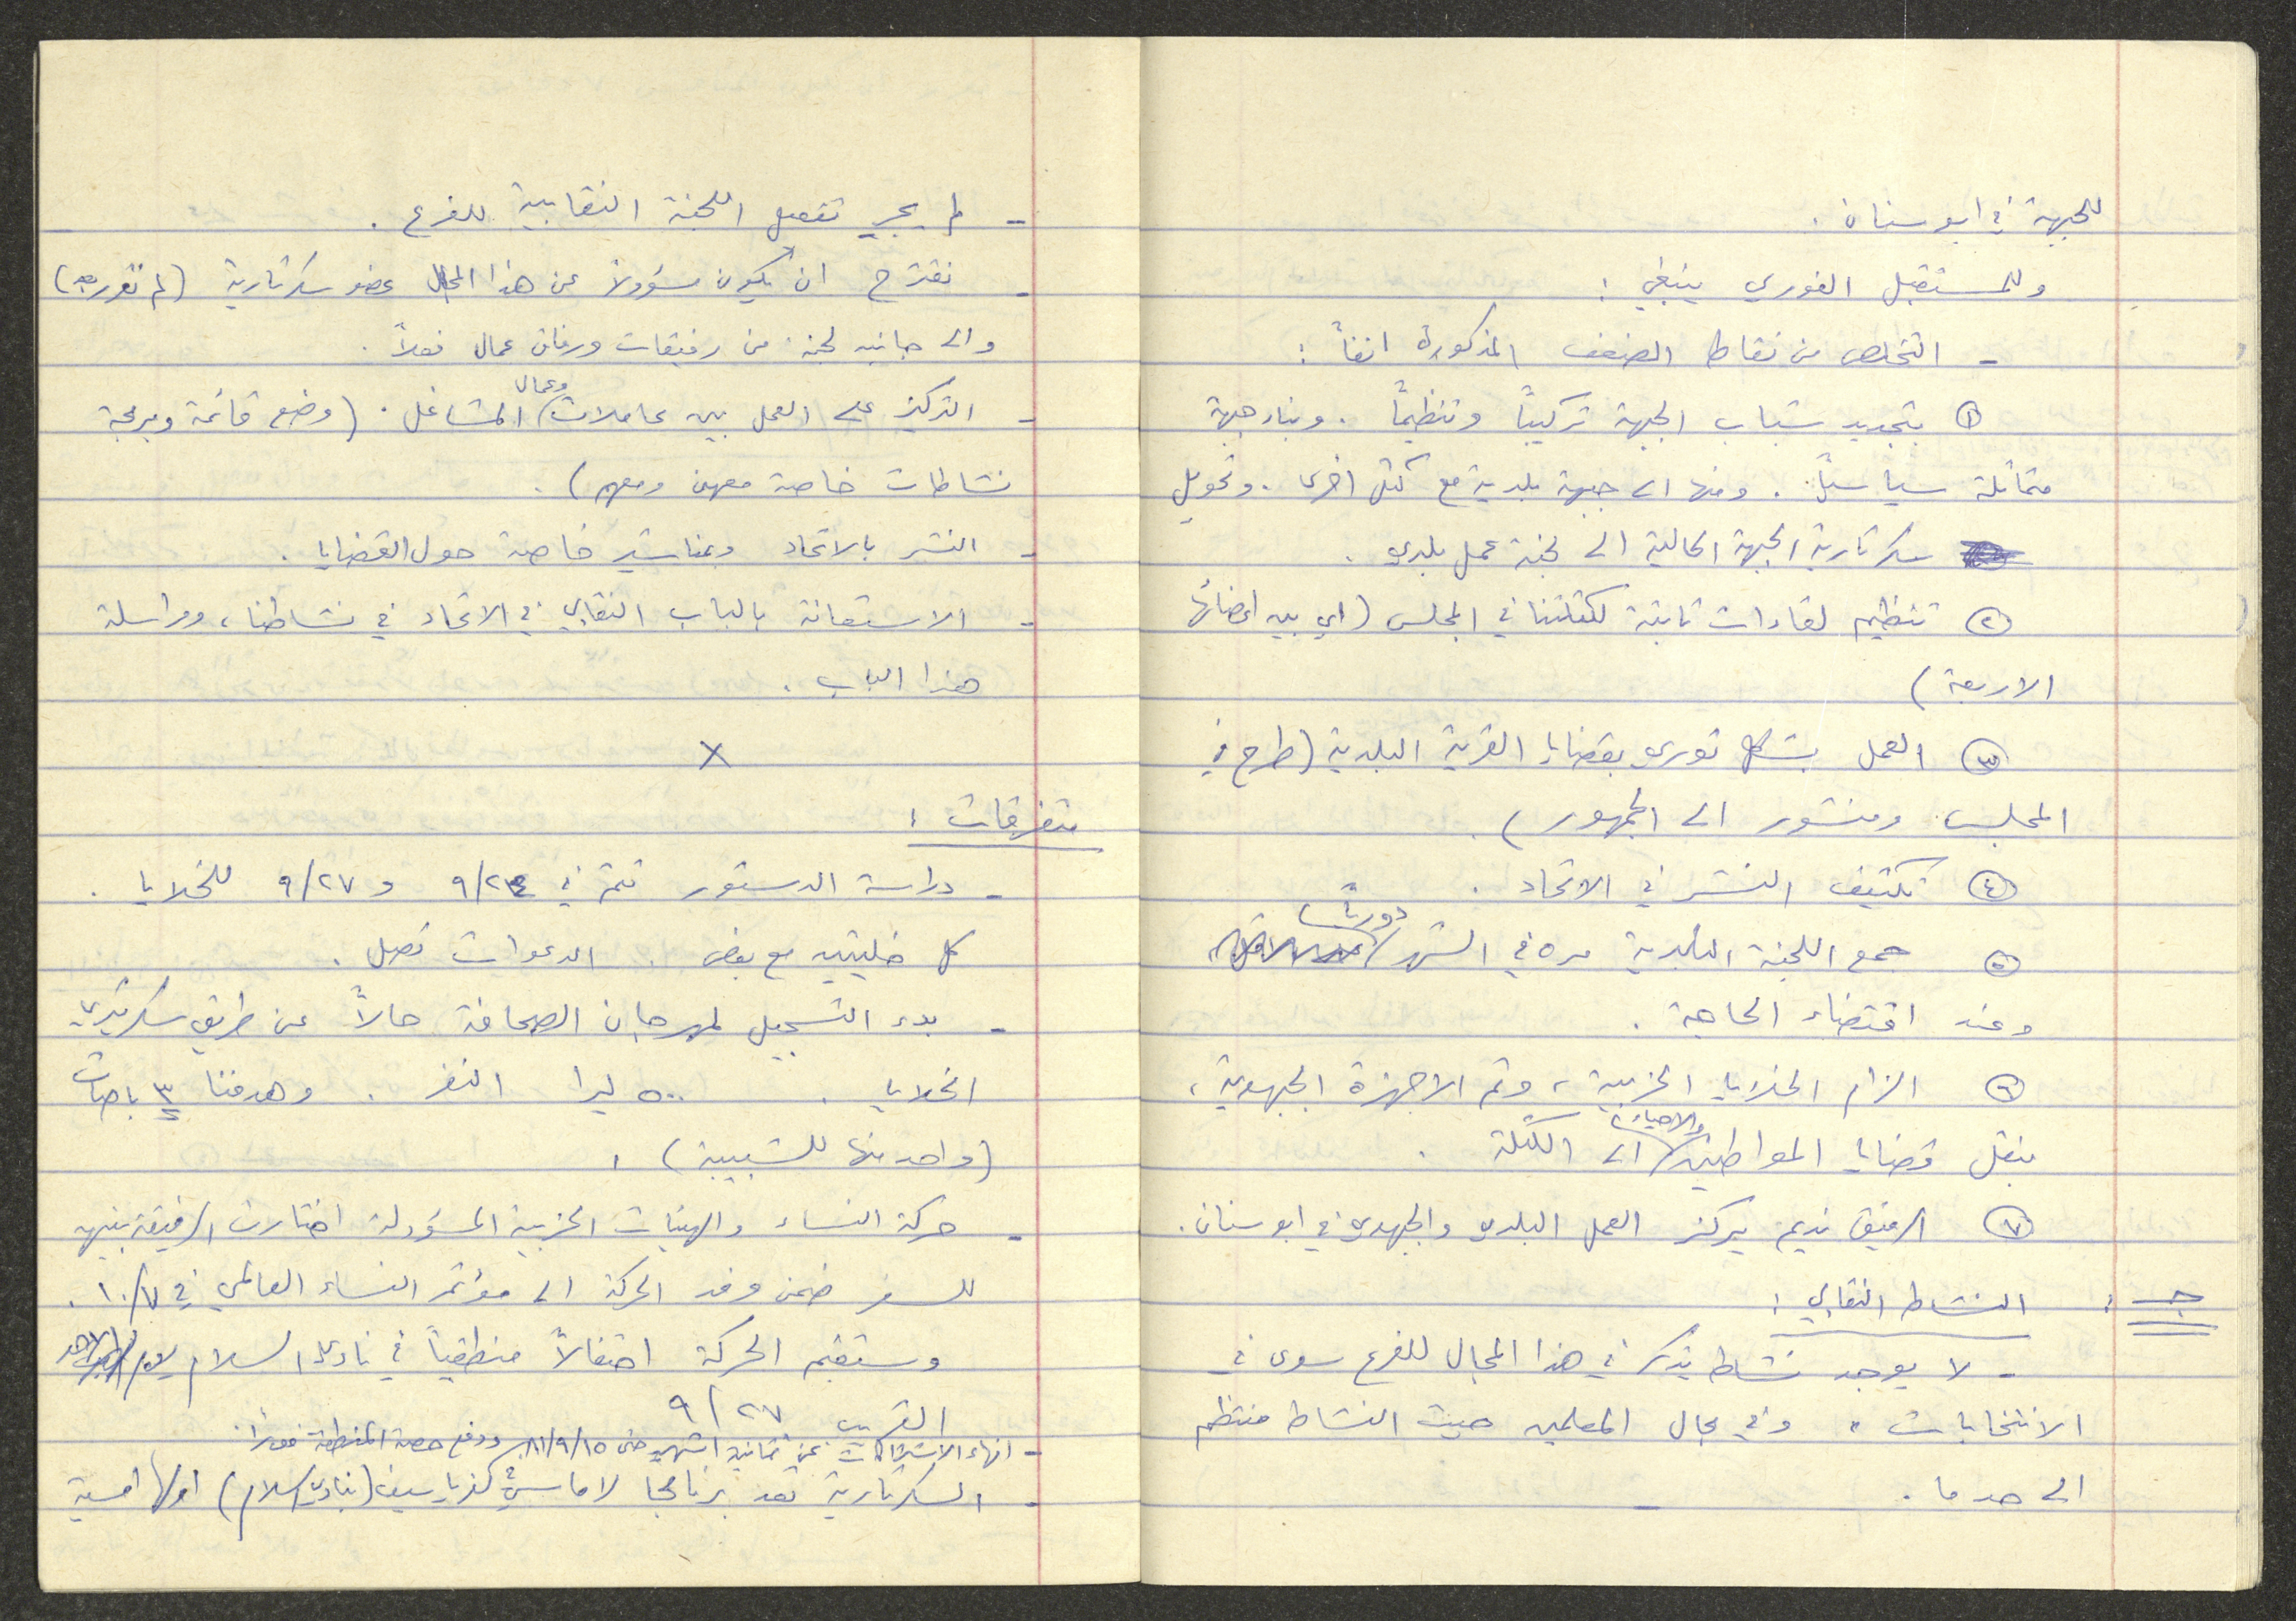 للجبهة في ابو سنان .
وللمستقبل الفوري ينبغي :
- التخلص من نقاط الضعف المذكورة انفاً :
١ بتجديد شباب الجبهة تركيباً وتنظيماً . وبناء جبهة
متماثلة سياسياً . ومنها الى جبهة بلدية مع كتل اخرى . وتحويل
سكرتارية الجبهة الحالية الى لجنة عمل بلدي .
٢ تنظيم لقاءات ثابتة لكتلتنا في المجلس (اي بين اعضائها
الاربعة)
٣ العمل بشكل ثوري بقضايا القرية البلدية (طرح في
المجلس ومنشور الى الجمهور) .
٤ تكثيف النشر في الاتحاد .
٥ جمع اللجنة البلدية مره في الشهر دورياً
وعند اقتضاء الحاجة .
٦ الزام الخلايا الحزبية ، وثم الاجهزة الجبهوية ،
بنقل قضايا المواطنين والاحياء الى الكتلة .
٧ الرفيق نديم يركز العمل البلدي والجبهوي في ابو سنان .
جـ : النشاط النقابي :
- لا يوجد نشاط يذكر في هذا المجال للفرع سوى في
الانتخابات . وفي مجال المعلمين حيث النشاط منتظم
الى حد ما .
- لم يجرِ تفعيل اللجنة النقابية للفرع .
- نقترح ان يكون مسؤولاً عن هذا المجال عضو سكرتارية (لم تقرر بعد)
والى جانبه لجنة من رفيقات ورفاق عمال فعلاً .
- التركيز على العمل بين عاملات وعمال المشاغل . (وضع قائمة وبرمجة
نشاطات خاصة معهن ومعهم) .
- النشر بالاتحاد وبمناشير خاصة حول القضايا .
- الاستعانة بالباب النقابي في الاتحاد في نشاطنا ، ومراسلة
هذا الباب .
X
متفرقات :
- دراسة الدستور تتم في ٩/٢٤ و ٩/٢٧ للخلايا .
كل خليتين مع بعض . الدعوات تصل .
- بدء التسجيل لمهرجان الصحافة حالاً عن طريق سكرتيري
الخلايا . ٥٠٠ ليرا النفر . وهدفنا ٣ باصات
(واحد منها للشبيبة) .
- حركة النساء والهيئات الحزبية المسؤولة اختارت الرفيقة نبيهه
للسفر ضمن وفد الحركة الى مؤتمر النساء العالمي في ١٠/٧ .
وستقيم الحركة احتفالاً منطقياً في نادي السلام يوم الاحد
القريب ٩/٢٧
- انهاء الاشتراكات عن ثمانية اشهر حتى ٨١/٩/١٥ ودفع حصة المنطقة فوراً .
- السكرتارية تعد برنامجا لاماسي كفرياسيف (بنادي السلام) اولها امسية